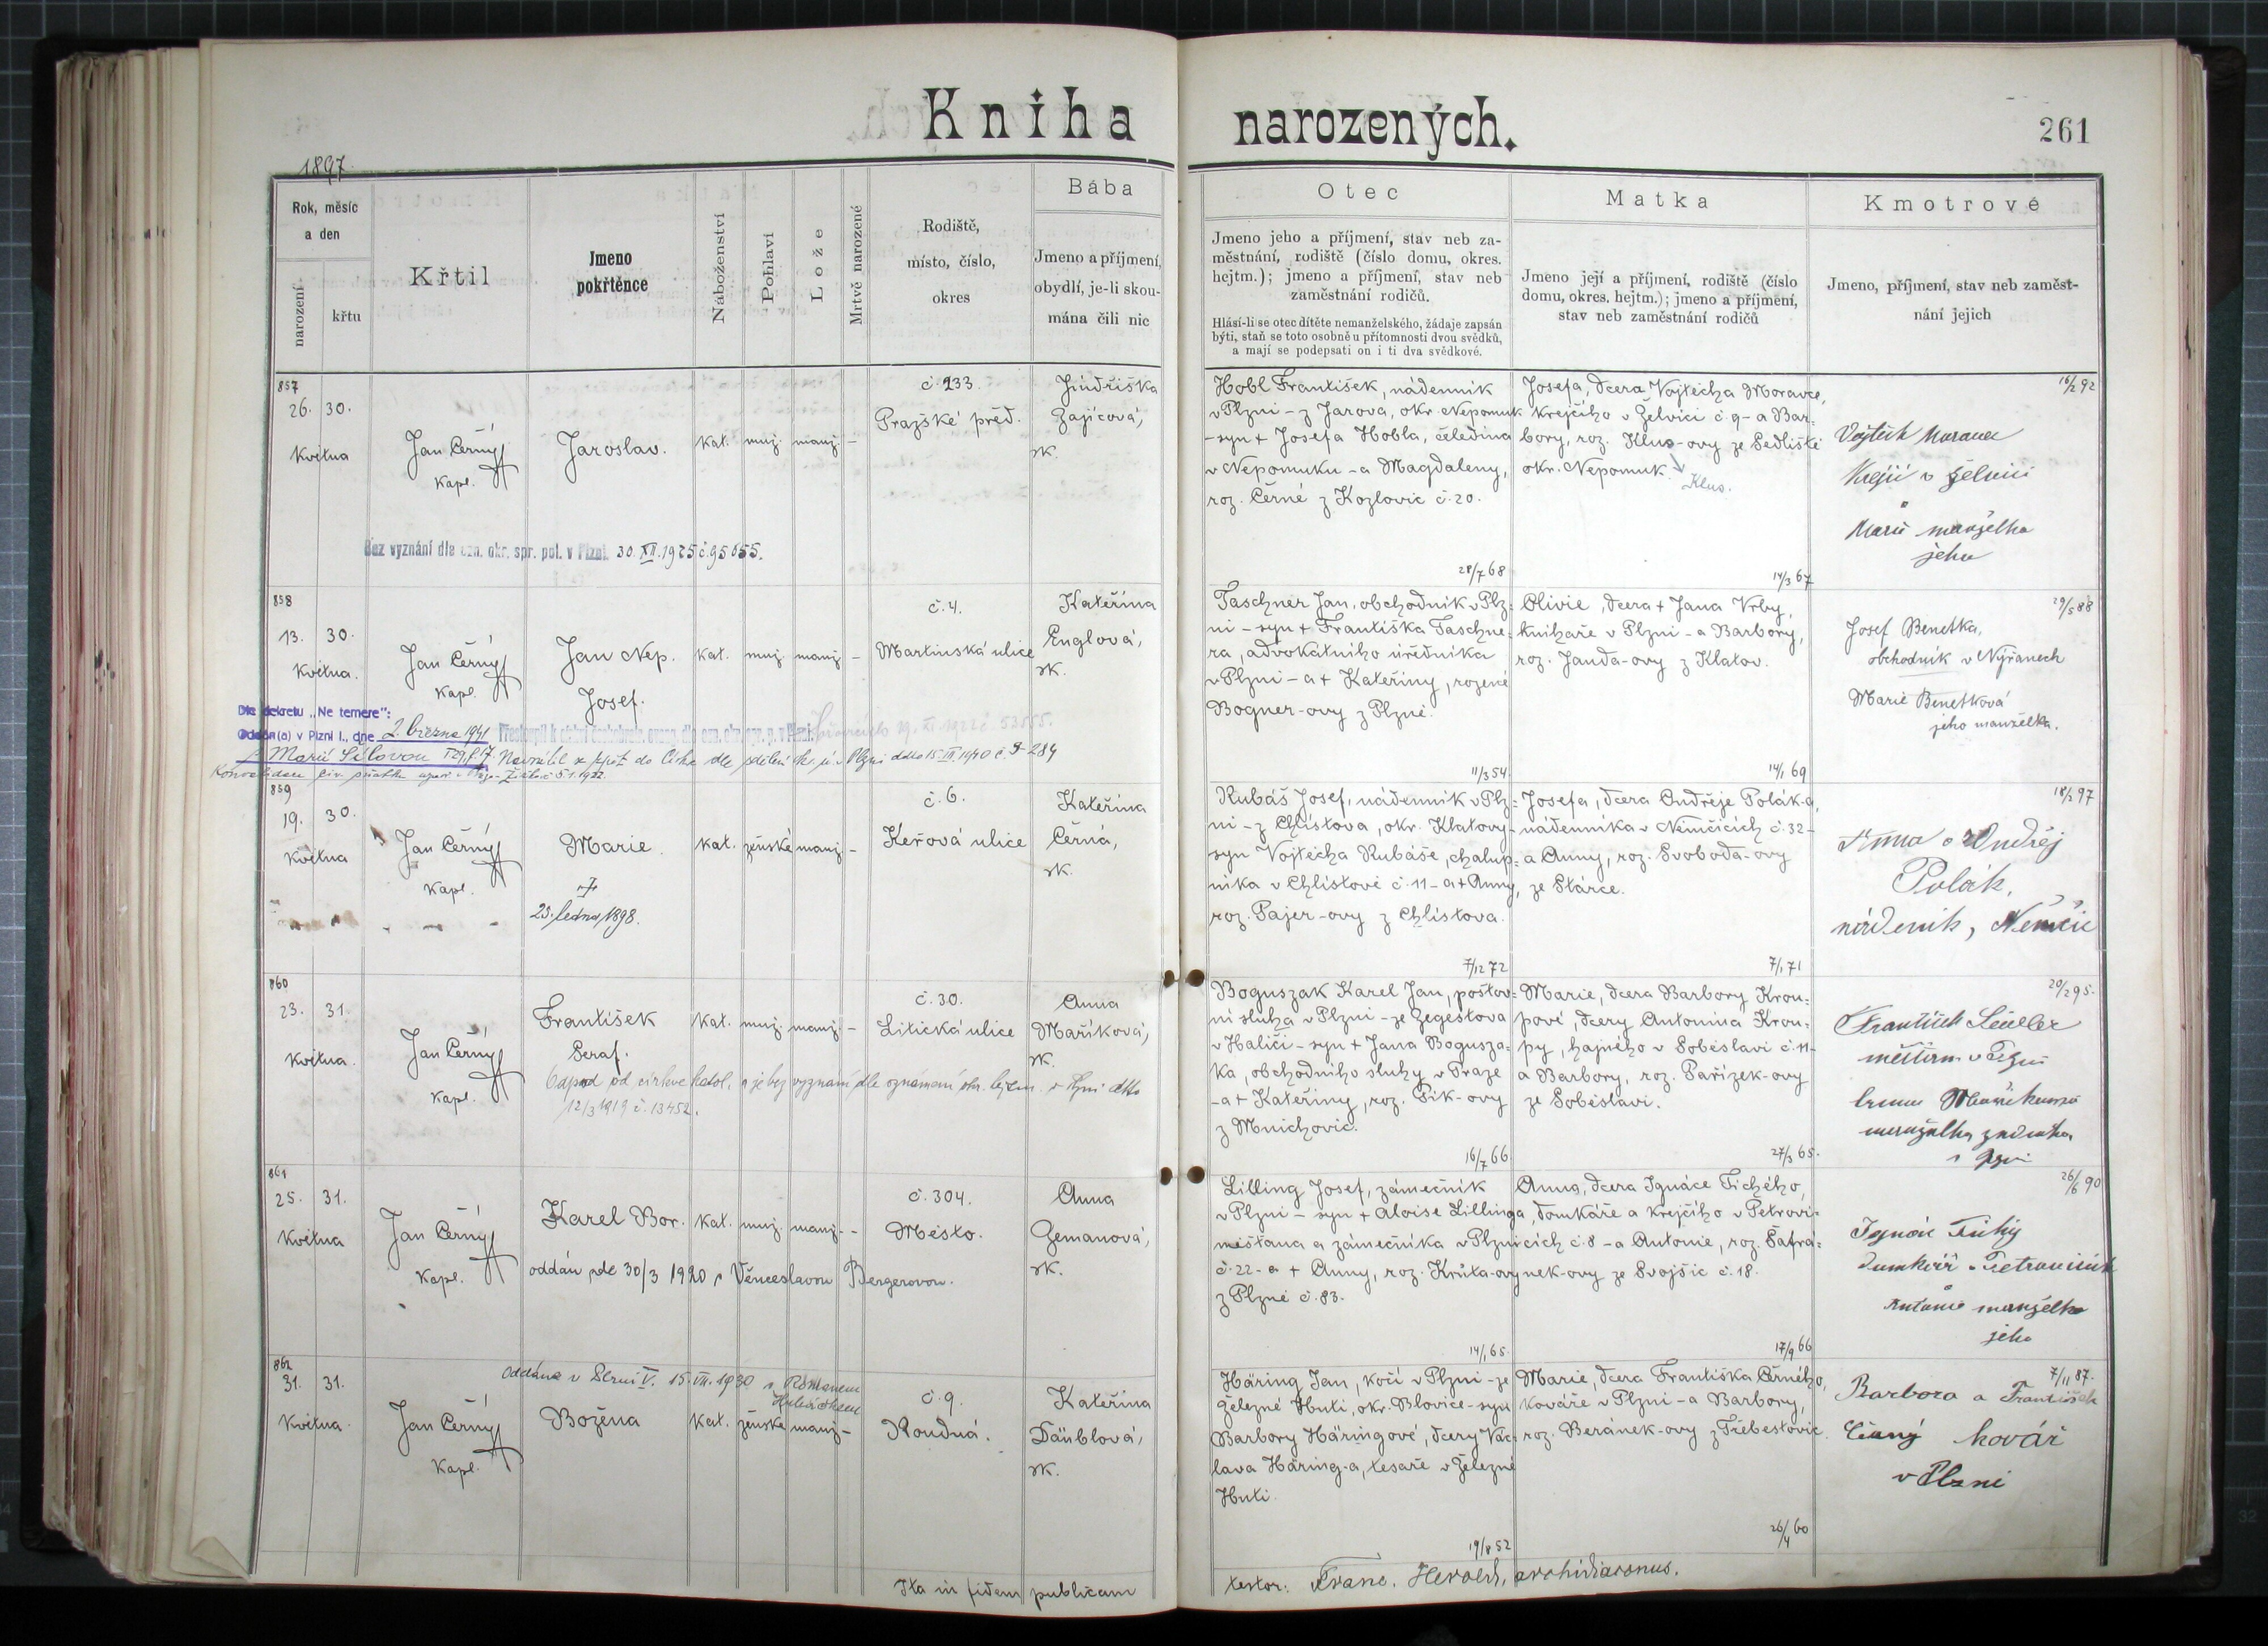 Kniha narozených.
261
1897.
Rok, měsíc
a den
narození
křtu
Křtil
Jmeno
pokřtěnce
Náboženství
Pohlaví
Lože
Mrtvě narozené
Rodiště,
místo, číslo,
okres
Bába
Jmeno a příjmení,
obydlí, je-li skou-
mána čili nic
Otec
Jmeno jeho a příjmení, stav neb za-
městnání, rodiště (číslo domu, okres.
hejtm.); jmeno a příjmení, stav neb
zaměstnání rodičů.
Hlásí-li se otec dítěte nemanželského, žádaje zapsán
býti, staň se toto osobně u přítomnosti dvou svědků,
a mají se podepsati on i ti dva svědkové.
Matka
Jmeno její a příjmení, rodiště (číslo
domu, okres. hejtm.); jmeno a příjmení,
stav neb zaměstnání rodičů
Kmotrové
Jmeno, příjmení, stav neb zaměst-
nání jejich
857
26. 30.
Května
Jan Černý
Kapl.
Jaroslav.
kat. muž. manž. –
č. 233.
Pražské před.
Jindřiška
Zajícová,
zk.
Bez vyznání dle ozn. okr. spr. pol. v Plzni 30. XII. 1925 č. 95655.
Hobl František, nádenník
v Plzni – z Jarova, okr. Nepomuk
– syn + Josefa Hobla, čeledína
v Nepomuku – a Magdaleny,
roz. Černé z Kozlovic č. 20.
28/7 68
Josefa, dcera Vojtěcha Moravce,
krejčího v Želvici č. 9 – a Bar=
bory, roz. Klus-ovy ze Sedliště
okr. Nepomuk.
Klus.
14/3 67
16/2 92
Vojtěch Moravec
Krejčí v Želvici
a
Marie manželka
jeho
858
13. 30.
Května.
Jan Černý
Kapl.
Jan Nep.
Josef.
kat. muž. manž. –
č. 4.
Martinská ulice
Kateřina
Englová,
zk.
Dle dekretu „Ne temere":
Oddán(a) v Plzni I., dne 2. března 1941
s Marií Šílovou
Navrátil se zpět do církve dle sdělení okr. úř. v Plzni ddto 15. III. 1940 č. 9-284
Taschner Jan, obchodník v Plz=
ni – syn + Františka Taschne=
ra, advokátního úředníka
v Plzni – a + Kateřiny, rozené
Bogner-ovy z Plzně.
11/3 54
Olivie, dcera + Jana Vrby,
knihaře v Plzni – a Barbory,
roz. Janda-ovy z Klatov.
14/1 69
29/5 88
Josef Benetka,
obchodník v Nýřanech
Marie Benetková
jeho manželka.
859
19. 30.
Května
Jan Černý
Kapl.
Marie
kat. ženské manž. –
†
23. ledna 1898.
č. 6.
Keřová ulice
Kateřina
Černá,
zk.
Kubáš Josef, nádenník v Plz=
ni – z Chlístova, okr. Klatovy –
syn Vojtěcha Kubáše, chalup=
níka v Chlístově č. 11 – a + Anny,
roz. Pajer-ovy z Chlístova.
7/12 72
Josefa, dcera Ondřeje Polák-a,
nádenníka v Němčicích č. 32 –
a Anny, roz. Svoboda-ovy
ze Stárce.
7/1 71
18/2 97
Anna a Ondřej
Polák,
nádeník, Němčic
860
23. 31.
Května.
Jan Černý
Kapl.
František
Seraf.
kat. muž. manž. –
č. 30.
Litická ulice
Anna
Maříková,
zk.
Odpad od církve katol. a je bez vyznání dle oznámení okr. hejtm. v Plzni ddto
12/3 1919 č. 13452.
Boguszak Karel Jan, poštov=
ní sluha v Plzni – ze Zegestova
v Haliči – syn + Jana Bogusza=
ka, obchodního sluhy v Praze
– a + Kateřiny, roz. Pik-ovy
z Mnichovic.
16/7 66
Marie, dcera Barbory Krou=
pové, dcery Antonína Krou=
py, hajného v Soběslavi č. 11 –
a Barbory, roz. Pařízek-ovy
ze Soběslavi.
27/3 65.
20/2 95.
František
měšťan v Plzni
manželka zedníka
v Plzni
861
25. 31.
Května
Jan Černý
Kapl.
Karel Bor.
kat. muž. manž. –
č. 304.
Město.
Anna
Zemanová,
zk.
oddán zde 30/3 1920 s Věnceslavou Bergerovou.
Lilling Josef, zámečník
v Plzni – syn + Aloise Lillinga,
měšťana a zámečníka v Plzni
č. 22 – a + Anny, roz. Krůta-ovy
z Plzně č. 83.
14/1 65.
Anna, dcera Ignáce Tichého,
domkáře a krejčího v Petrovi=
cích č. 8 – a Antonie, roz. Šafrá=
nek-ovy ze Svojšic č. 18.
17/9 66
26/6 90
Ignác Tichý
domkář v Petrovicích
a
Antonie manželka
jeho
862
31. 31.
Května.
Jan Černý
Kapl.
Oddána v Plzni V. 15. VII. 1930 s Romanem
Božena
kat. ženské manž. –
č. 9.
Roudná.
Kateřina
Däublová,
zk.
Häring Jan, kočí v Plzni – ze
Železné Huti, okr. Blovice – syn
Barbory Häringové, dcery Vác=
lava Häring-a, tesaře v Železné
Huti.
19/8 52
Marie, dcera Františka Černého,
kováře v Plzni – a Barbory,
roz. Beránek-ovy z Třebestovic.
26/4 60
7/11 87.
Barbora a František
Černý kovář
v Plzni
Ita in fidem publicam
testor: Franc. Herold, archidiaconus.